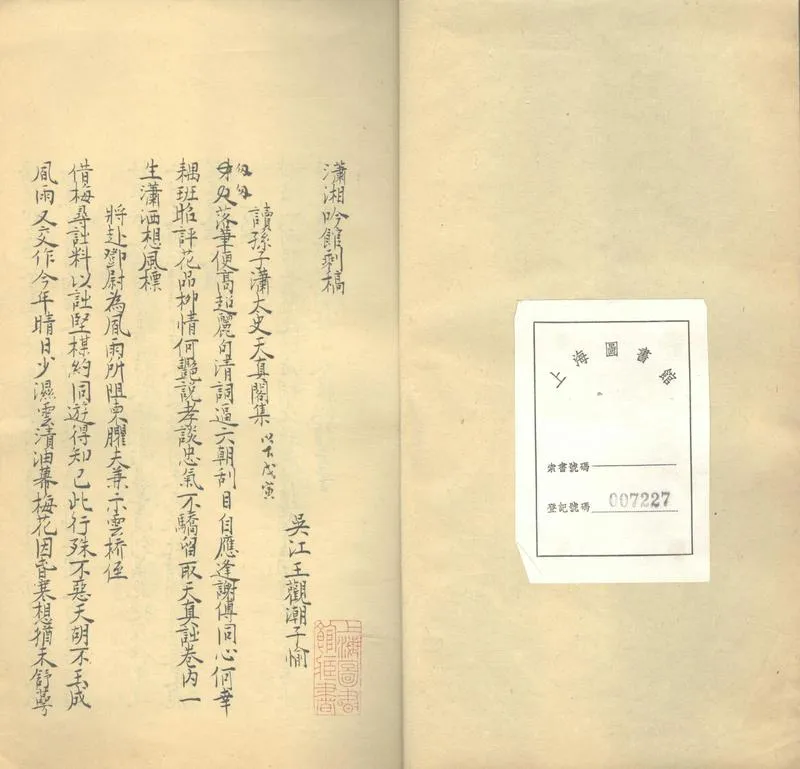 上海圖書館
索書號碼
登記號碼 007227
瀟湘吟館剩槁
吳江王觀潮子愉
上海圖書館藏書
讀孫子瀟太史天真閣集 以下戊寅
落筆便高超麗句清詞逼六朝刮目自應逢謝傅同心何幸
耦班昭評花品柳情何艷說孝談忠氣不驕留取天真詩卷內一
生瀟洒想風標
將赴鄧尉為風雨所阻柬臞夫兼示雲橋侄
借梅尋詩料以詩堅楳約同遊得知己此行殊不惡天胡不玉成
風雨又交作今年晴日少濕雲漬油幕梅花因昏寒想猶未舒萼